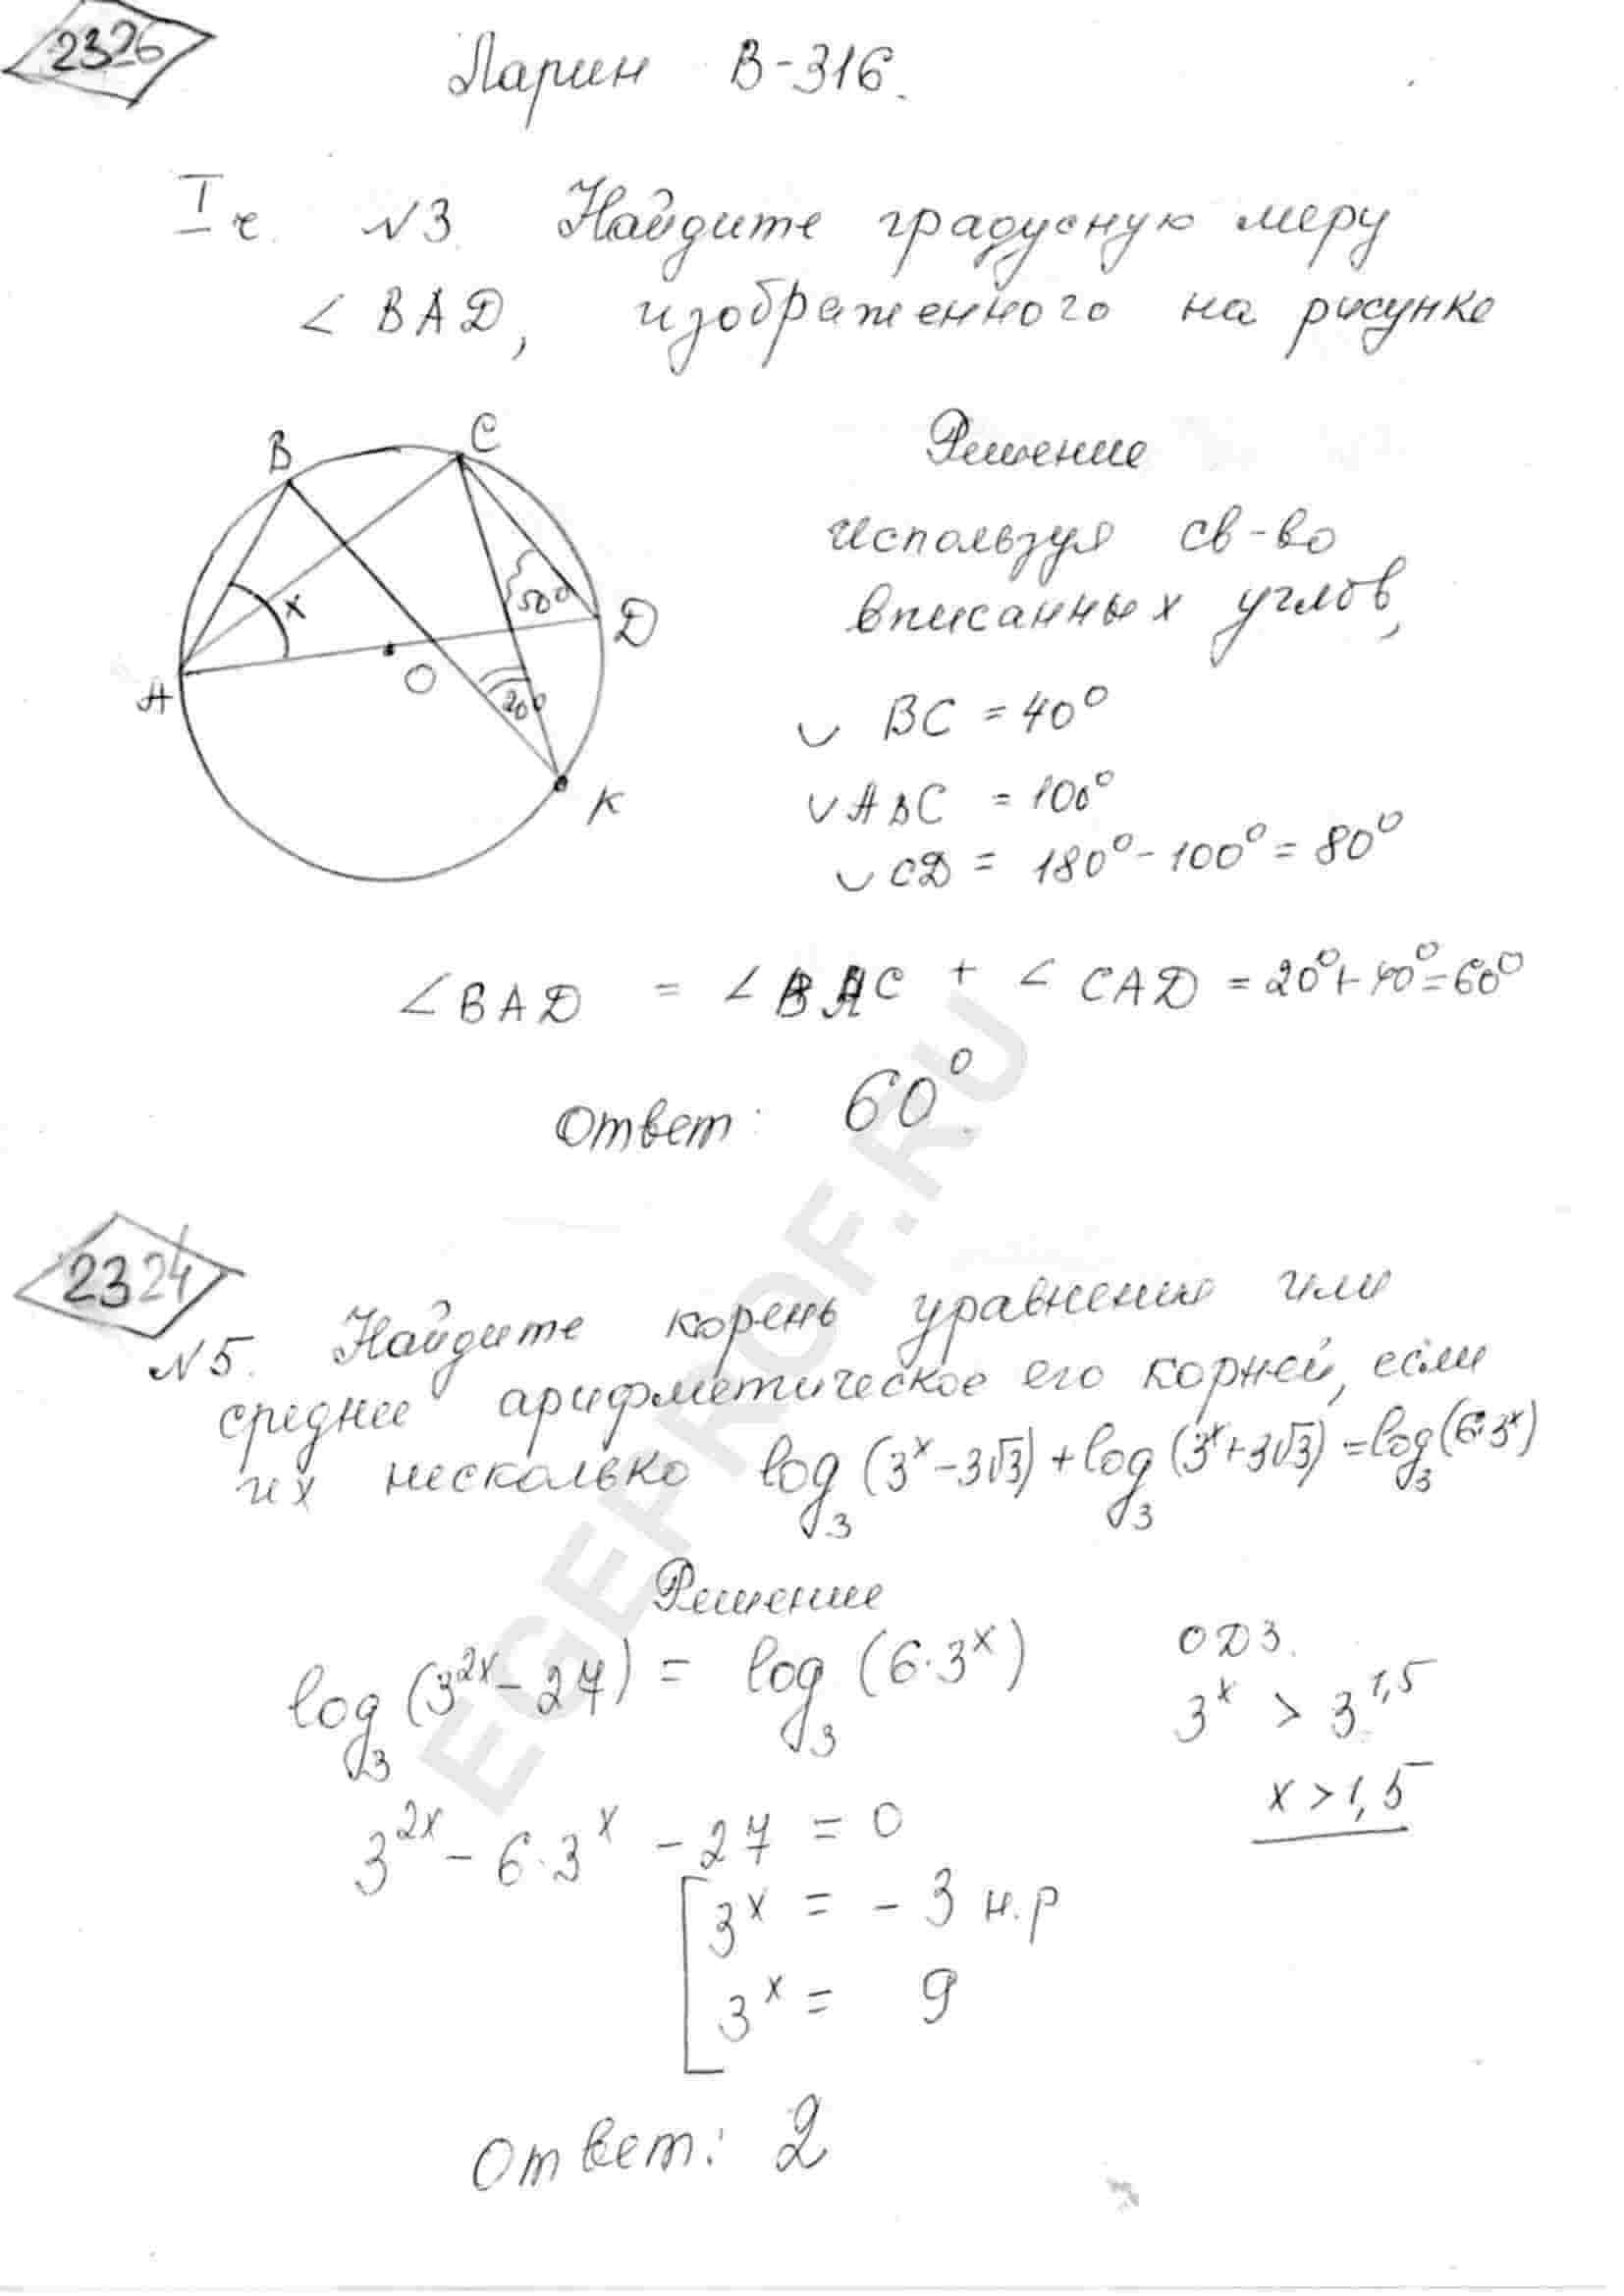 2326
Ларин В-316.
I ч. №3. Найдите градусную меру
∠ BAD, изображенного на рисунке
B C
Решение
используя св-во
вписанных углов,
x 50° D
A O 20°
K
◡ BC = 40°
◡ ABC = 100°
◡ CD = 180° - 100° = 80°
∠BAD = ∠BAC + ∠CAD = 20° + 40° = 60°
Ответ: 60°.
EGEPROF.RU
2324
№5. Найдите корень уравнения или
среднее арифметическое его корней, если
их несколько log₃(3ˣ - 3√3) + log₃(3ˣ + 3√3) = log₃(6·3ˣ)
Решение
log₃(3²ˣ - 27) = log₃(6·3ˣ)
ОДЗ.
3ˣ > 3^1,5
x > 1,5
3²ˣ - 6·3ˣ - 27 = 0
[ 3ˣ = - 3 н.р
3ˣ = 9
Ответ: 2